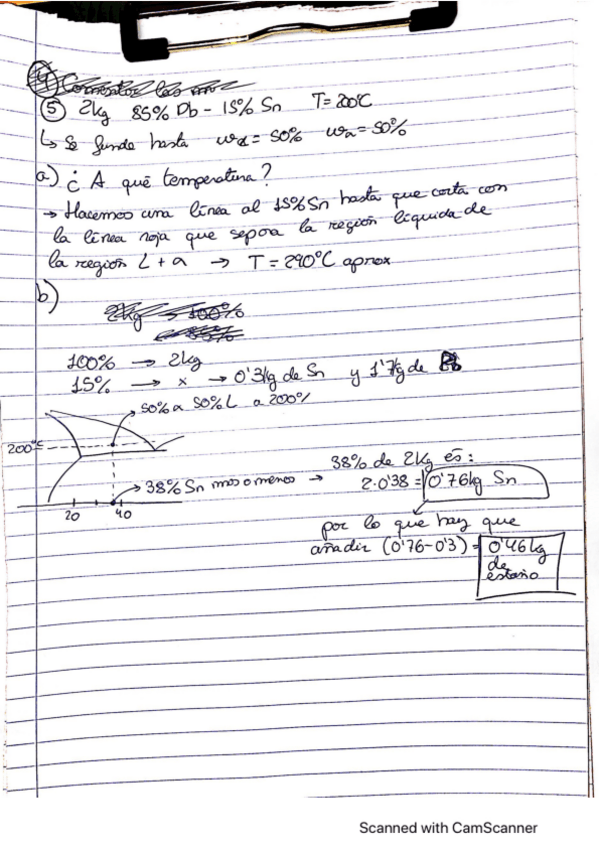 4) Comentar las
5) 2kg 85% Pb - 15% Sn T=200ºC
↳ Se funde hasta wα = 50% wα = 50%
a) ¿A qué temperatura?
→ Hacemos una línea al 15% Sn hasta que corta con
la línea roja que separa la región líquida de
la región L + α → T = 290ºC aprox
b)
2kg → 100%
85%
100% → 2kg
15% → x → 0'3kg de Sn y 1'7kg de Pb
50% α 50% L a 200%
200ºC
38% Sn mas o menos →
38% de 2kg es:
2·0'38 = 0'76kg Sn
20 40
por lo que hay que
añadir (0'76-0'3) = 0'46kg
de
estaño
Scanned with CamScanner